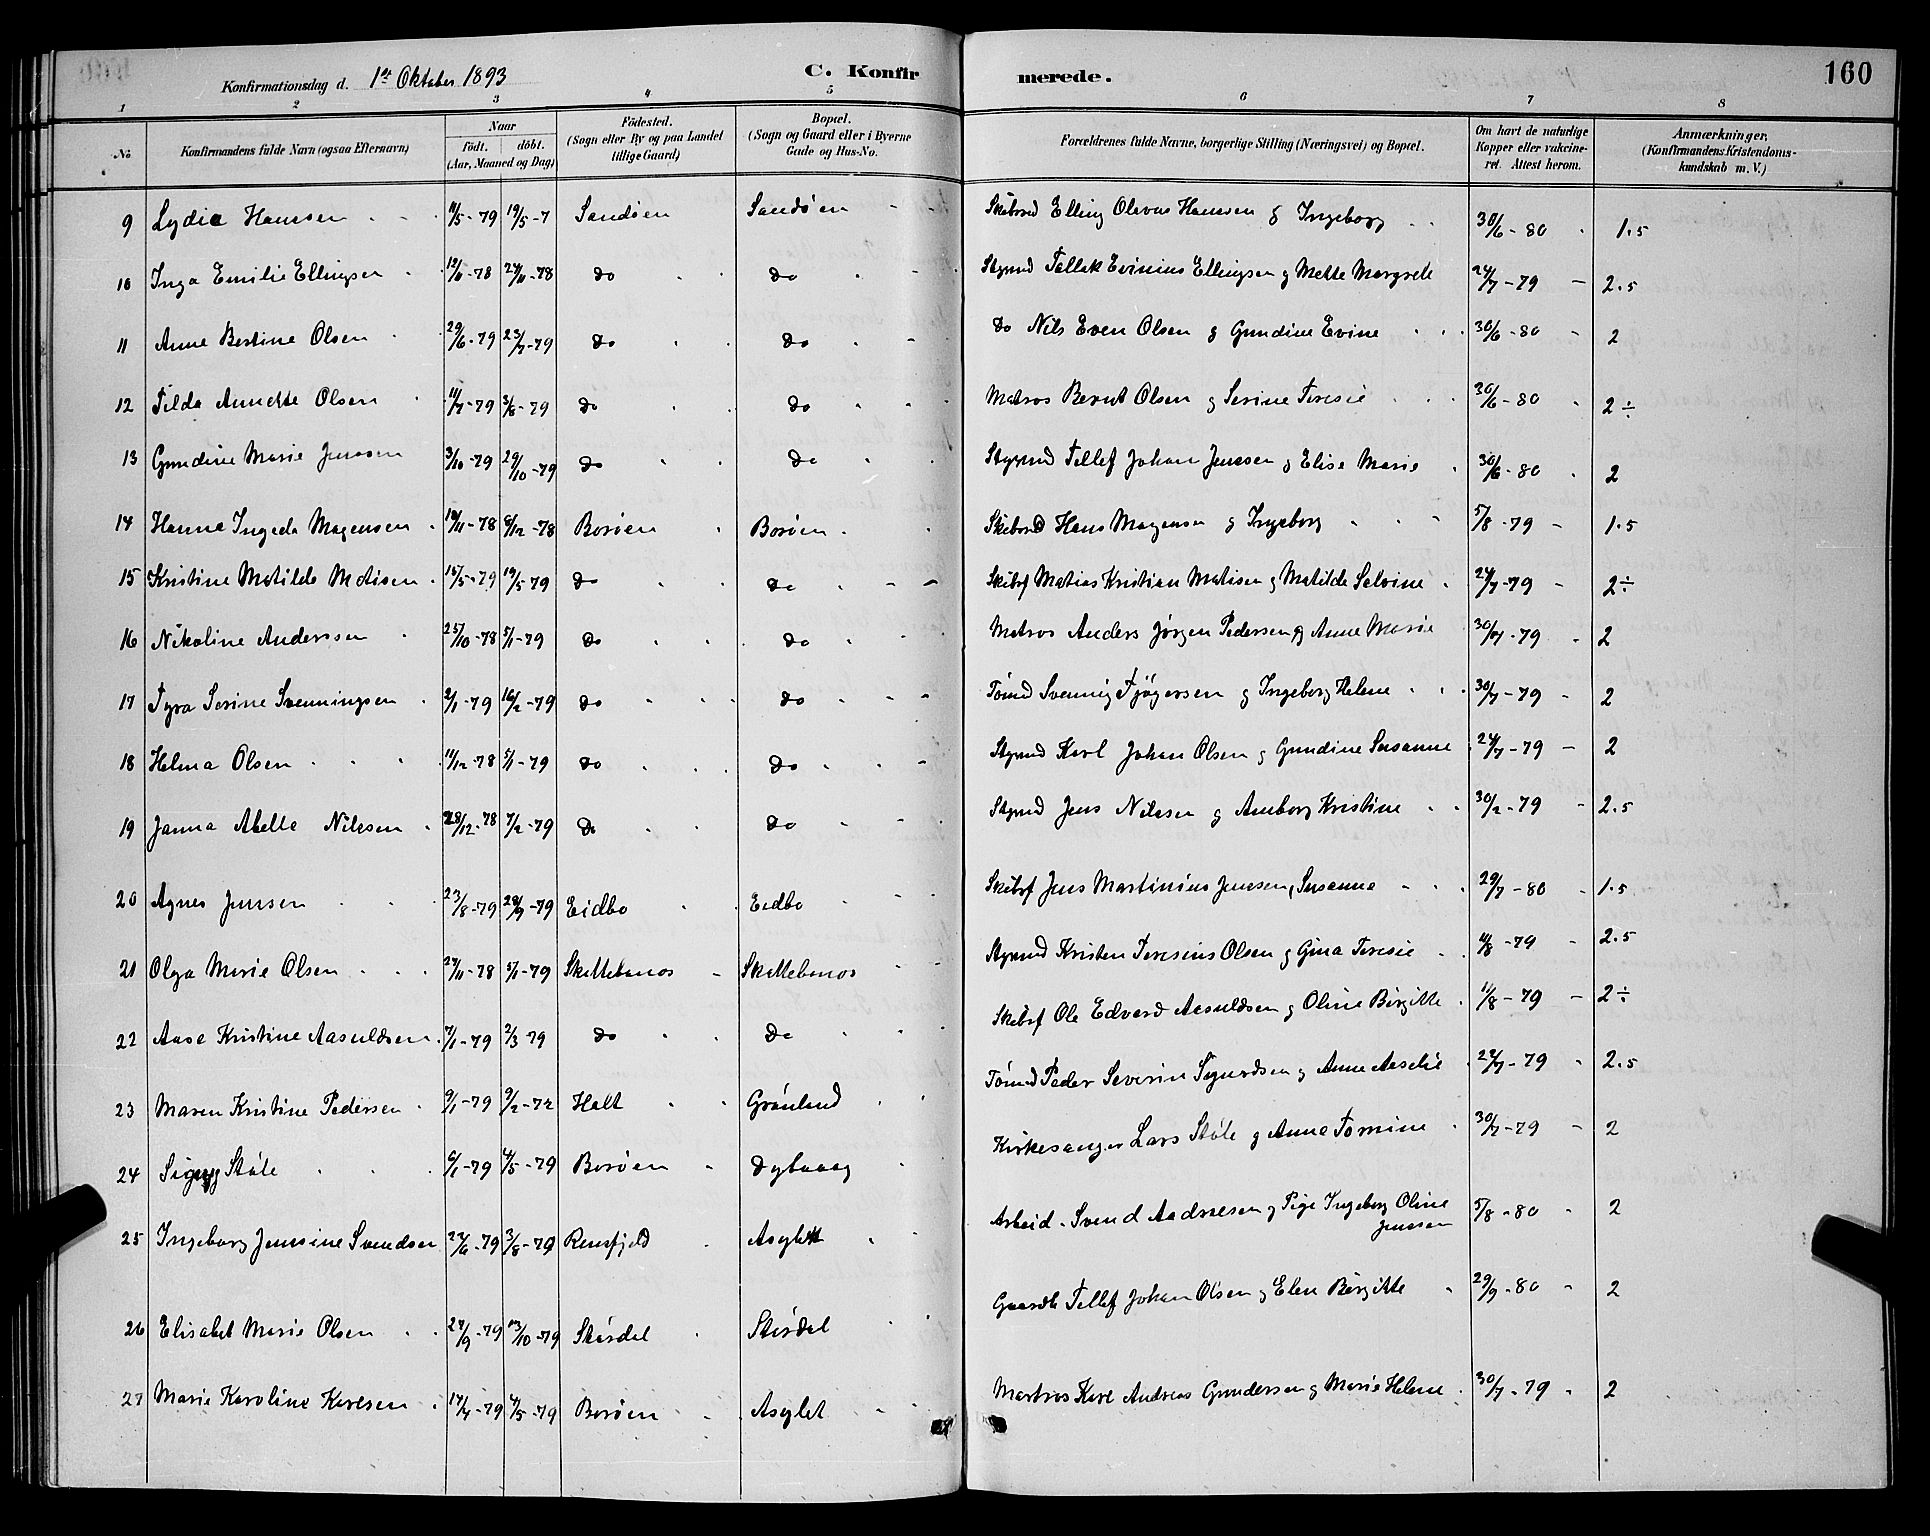 Konfirmationsdag d. 1ste Oktober 1893 C. Konfirmerede. 160
1 2 3 4 5 6 7 8
No Konfirmandens fulde Navn (ogsaa Efternavn) Naar födt. döbt. (Aar, Maaned og Dag) Födested. (Sogn eller By og paa Landet tillige Gaard) Bopæl. (Sogn og Gaard eller i Byerne Gade og Hus-No. Forældrenes fulde Navne, borgerlige Stilling (Næringsvei) og Bopæl. Om havt de naturlige Kopper eller vakcineret. Attest herom. Anmærkninger, (Konfirmandens Kristendomskundskab m. V.)
9 Lydia Hanssen 4/5-79 19/5-7 Sandöen Sandöen Skibsmd Elling Olavus Hansen og Ingeborg 30/6-80 1.5
10 Inga Emilie Ellingsen -78 24/11-78 do do Styrmd Tellak Evinius Ellingsen og Mette Margrete 24/7-79 2.5
11 Anne Bertine Olsen 29/6-79 23/7-79 do do do Nils Even Olsen og Gundine Evine 30/6-80 2
12 Tilda Annette Olsen 11/7-79 3/8-79 do do Matros Bernt Olsen og Serine Teresie 30/6-80 2÷
13 Gundine Marie Jenssen 3/10-79 29/10-79 do do Styrmd Tellef Johan Jenssen og Elise Marie 30/6-80 2
14 Hanna Ingeda Magensen 19/11-78 8/12-78 Boröen Boröen Skibsmd Hans Magensen og Ingeborg 5/8-79 1.5
15 Kristine Matilde Matisen 15/5-79 19/5-79 do do Skibsf Matias Kristian Matisen og Matilde Salvine 24/7-79 2÷
16 Nikoline Anderssen 25/10-78 5/1-79 do do Matros Anders Jörgen Pedersen og Anne Marie 30/7-79 2
17 Tyra Serine Svenningsen 2/1-79 16/2-79 do do Tömd Svennig Tjögersen og Ingeborg Helene 30/7-79 2
18 Helma Olsen 11/12-78 5/1-79 do do Styrmd Karl Johan Olsen og Gundine Susanne 24/7-79 2
19 Janna Abelle Nilssen 28/12-78 7/2-79 do do Styrmd Jens Nilssen og Amborg Kristine 30/7-79 2.5
20 Agnes Jenssen 23/8-79 28/9-79 Eidbo Eidbo Skibsf Jens Martinius Jenssen, Susanne 29/7-80 1.5
21 Olga Marie Olsen 24/11-78 5/1-79 Skottebanos Skottebanos Styrmd Kristen Teresius Olsen og Gina Teresie 4/8-79 2.5
22 Aase Kristine Aasuldsen 7/1-79 2/3-79 do do Skibsf Ole Edvard Aasuldsen og Oline Birgitte 11/8-79 2÷
23 Maren Kristine Pedersen 9/1-79 9/2-72 Holt Grönland Tömd Peder Severin Sigurdsen og Anne Aselie 24/7-79 2.5
24 Signy Ståle 6/1-79 4/5-79 Boröen Dybvaag Kirkesanger Lars Ståle og Anne Tomine 30/7-79 2
25 Ingeborg Jenssine Svendsen 22/6-79 3/8-79 Rensfjeld Asylet Arbeid. Svend Aadnesen og Pige Ingeborg Oline Jenssen 5/8-80 2
26 Elisabet Marie Olsen 24/9-79 /10-79 Stördal Stördal Gaardb Tellef Johan Olsen og Elen Birgitte 29/9-80 2
27 Marie Karoline Karlsen 17/4-79 4/5-79 Boröen Asylet Martros Karl Andreas Gundersen og Marie Helene 30/7-79 2